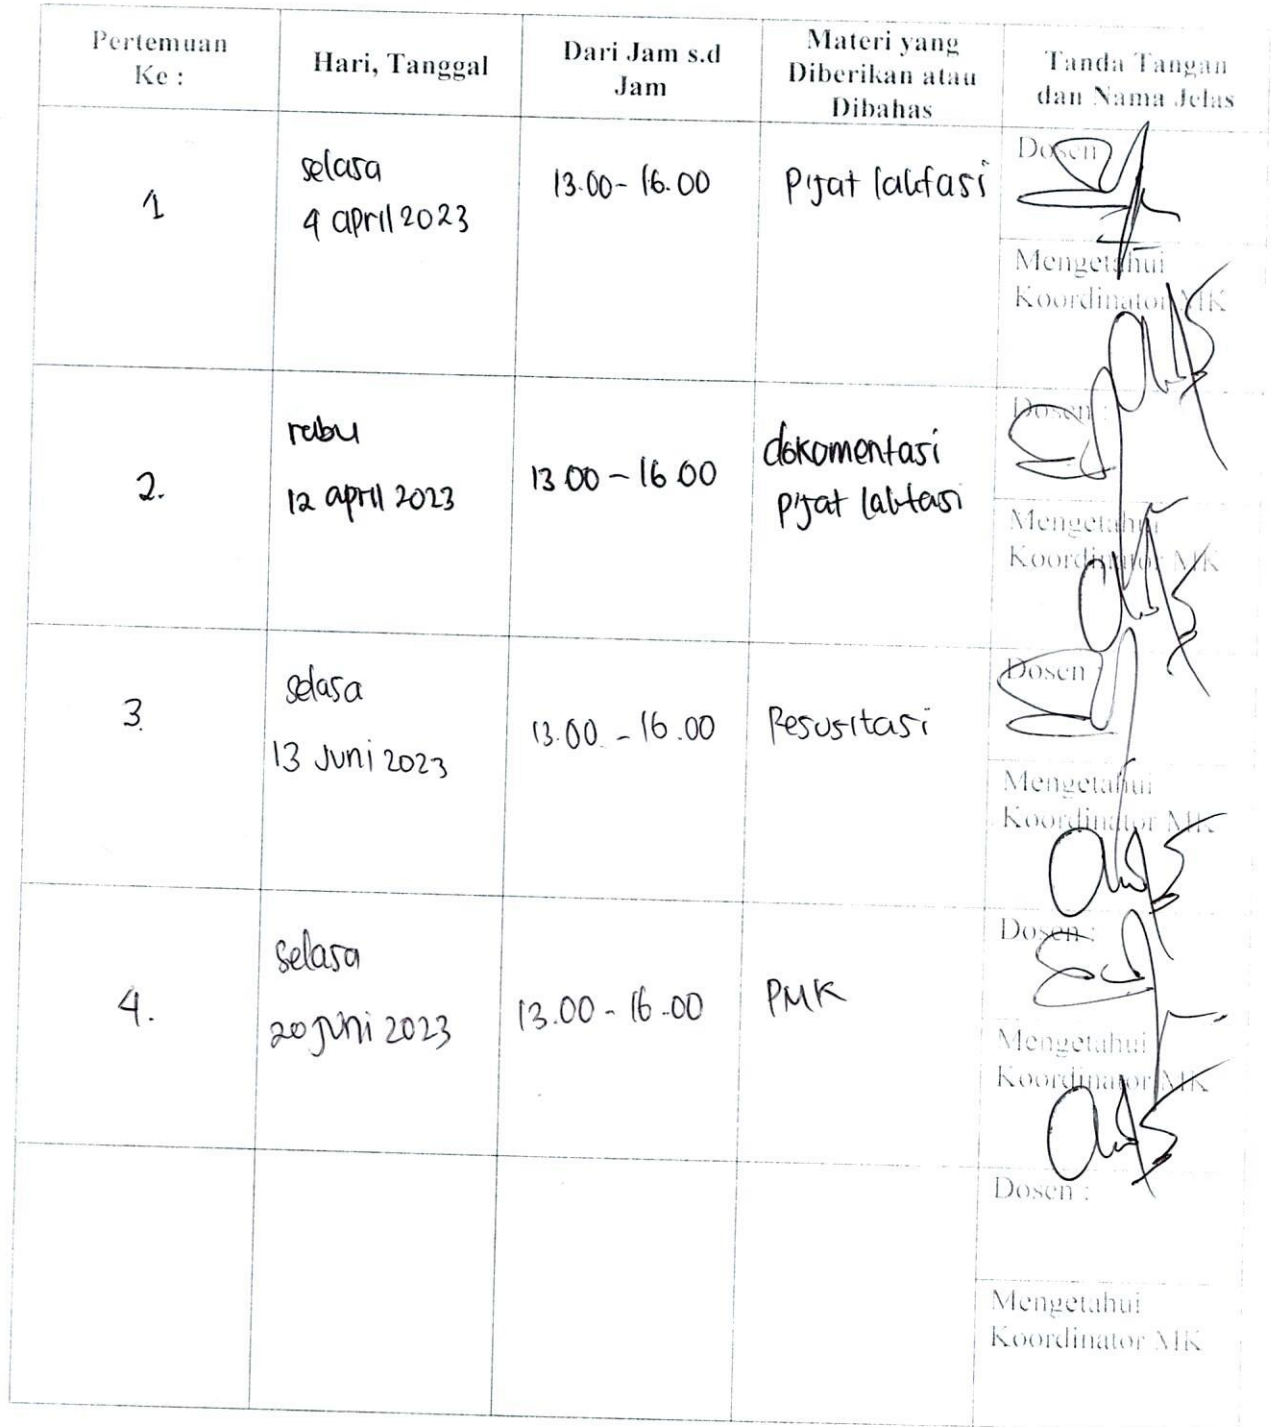 Pertemuan
Ke :
Hari, Tanggal
Dari Jam s.d
Jam
Materi yang
Diberikan atau
Dibahas
Tanda Tangan
dan Nama Jelas
1
selasa
4 april 2023
13.00 - 16.00
Pijat laktasi
Dosen :
Mengetahui
Koordinator MK
2.
rabu
12 april 2023
13 00 - 16 00
dokomentasi
pijat laktasi
Dosen :
Mengetahui
Koordinator MK
3.
selasa
13 Juni 2023
13.00 - 16.00
Resusitasi
Dosen :
Mengetahui
Koordinator MK
4.
selasa
20 juni 2023
13.00 - 16.00
PMK
Dosen :
Mengetahui
Koordinator MK
Dosen :
Mengetahui
Koordinator MK